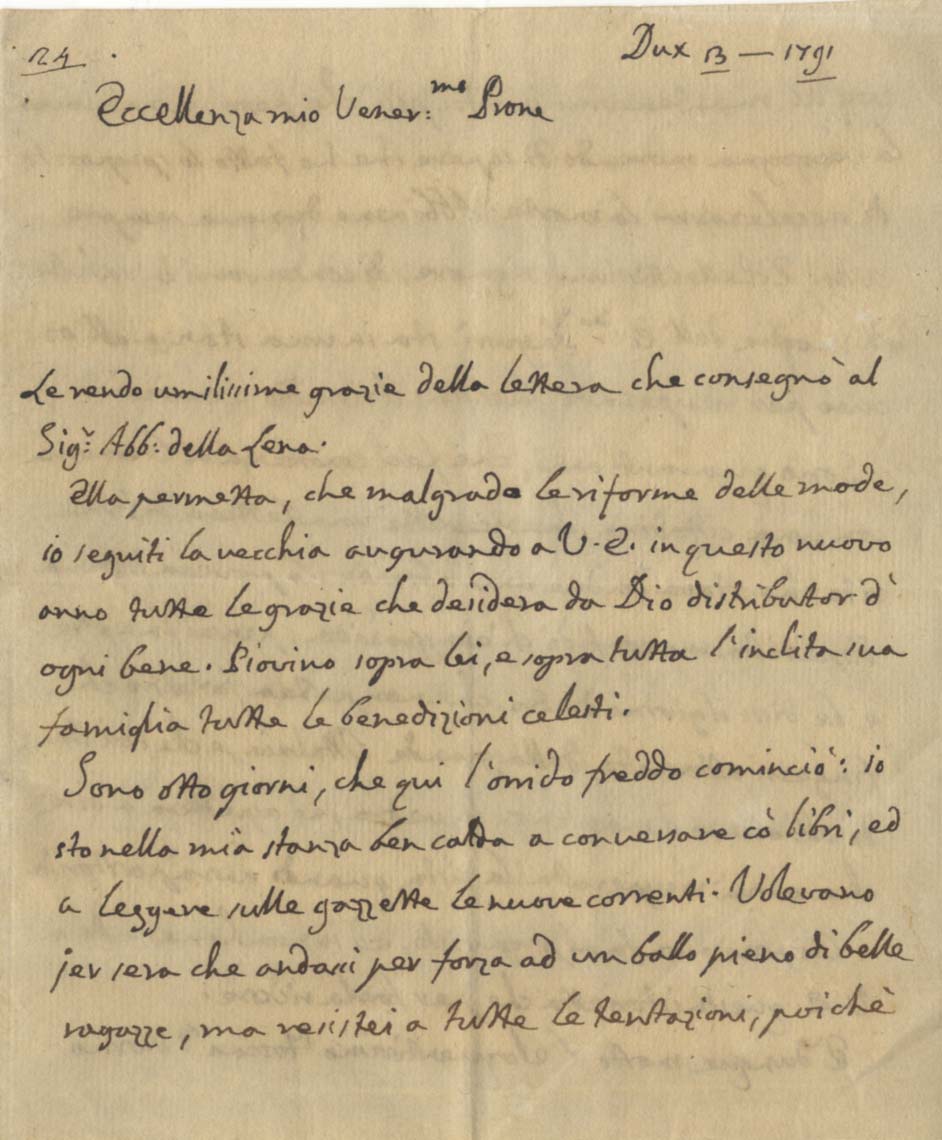 24.
Dux 13 — 1791
Eccellenza mio Vener:mo Prone
Le rendo umilissime grazie della lettera che consegnò al
Sigr: Abb: della Lena.
Ella permetta, che malgrado le riforme delle mode,
io seguiti la vecchia augurando a V. E. in questo nuovo
anno tutte le grazie che desidera da Dio distributor d'
ogni bene. Piovino sopra lei, e sopra tutta l'inclita sua
famiglia tutte le benedizioni celesti.
Sono otto giorni, che qui l'orrido freddo cominciò: io
sto nella mia stanza ben calda a conversare cò libri, ed
a leggere sulle gazzette le nuove correnti. Volevano
jer sera che andassi per forza ad un ballo pieno di belle
ragazze, ma resistei a tutte le tentazioni, poichè